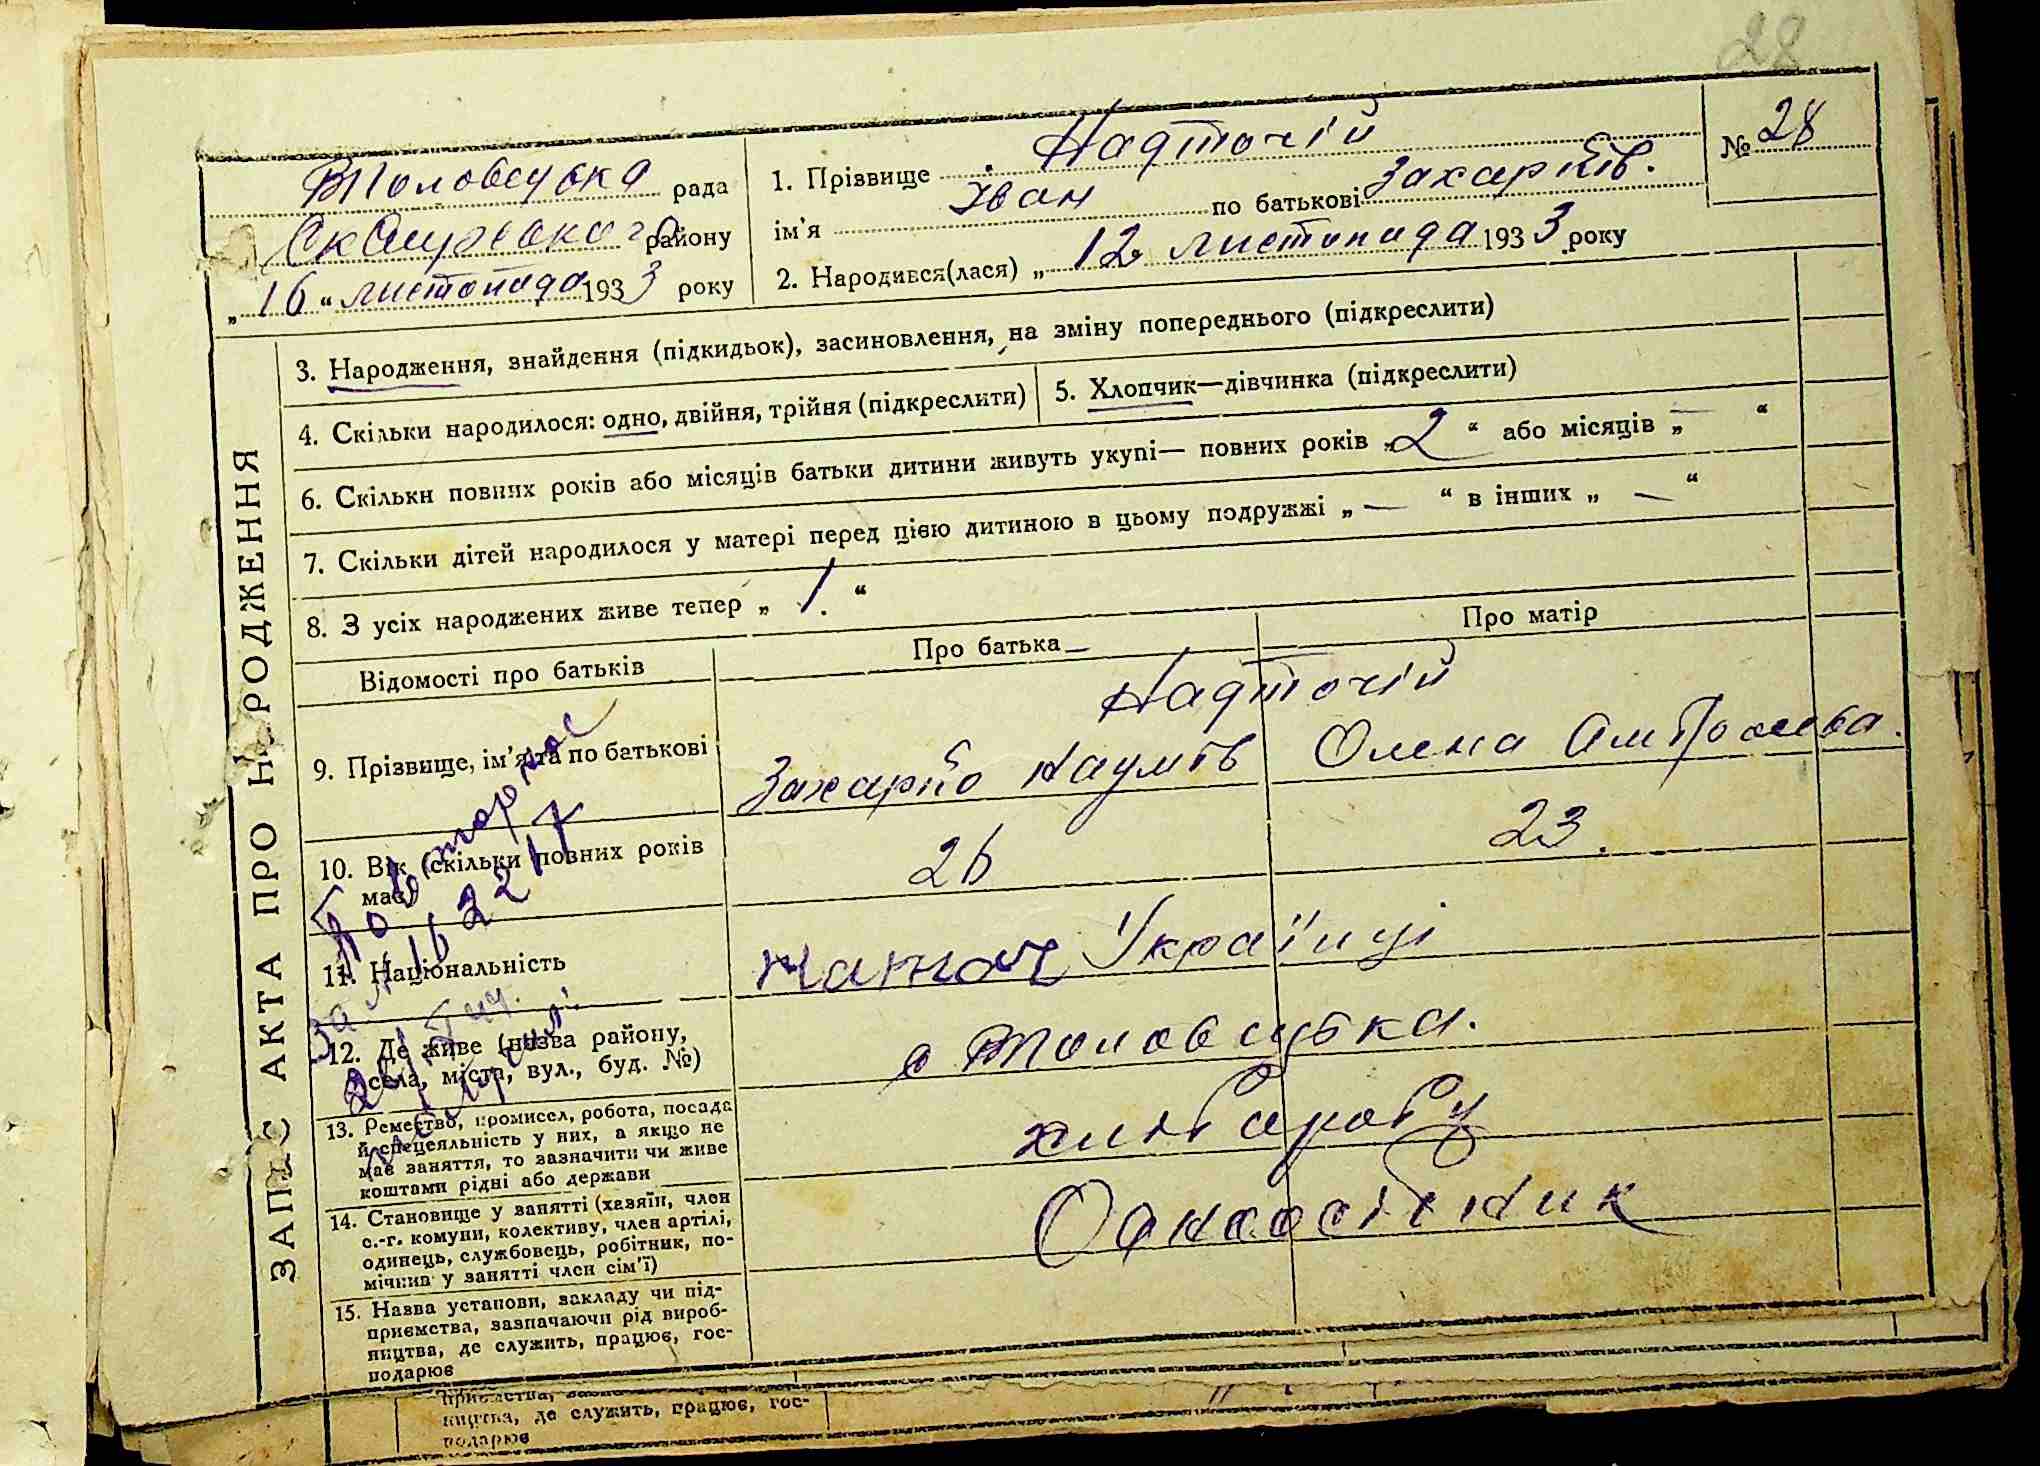 28
рада
району
„16“ листопада 1933 року
1. Прізвище Надточій
ім'я Іван по батькові Захарків.
2. Народився(лася) „12 листопада 1933 року
№ 28
ЗАПИС АКТА ПРО НАРОДЖЕННЯ
3. Народження, знайдення (підкидьок), засиновлення, на зміну попереднього (підкреслити)
4. Скільки народилося: одно, двійня, трійня (підкреслити)
5. Хлопчик—дівчинка (підкреслити)
6. Скільки повних років або місяців батьки дитини живуть укупі— повних років „2“ або місяців „—“
7. Скільки дітей народилося у матері перед цією дитиною в цьому подружжі „—“ в інших „—“
8. З усіх народжених живе тепер „1.“
Відомості про батьків
Про батька
Про матір
9. Прізвище, ім'я та по батькові
Надточій
Захарко Наумів
Олена
10. Вік (скільки повних років має)
26
23.
11. Національність
Українці
12. Де живе (назва району,
села, міста, вул., буд. №)
с
13. Ремество, промисел, робота, посада
й спецеяльність у них, а якщо не
має заняття, то зазначити чи живе
коштами рідні або держави
хлібаробу
14. Становище у занятті (хазяїн, член
с.-г. комуни, колективу, член артілі,
одинець, службовець, робітник, по-
мічник у занятті член сім'ї)
Одноосібник
15. Назва установи, закладу чи під-
приємства, зазначаючи рід вироб-
ництва, де служить, працює, гос-
подарює
Повторное
приємства,
ництва, де служить, працює, гос-
подарює